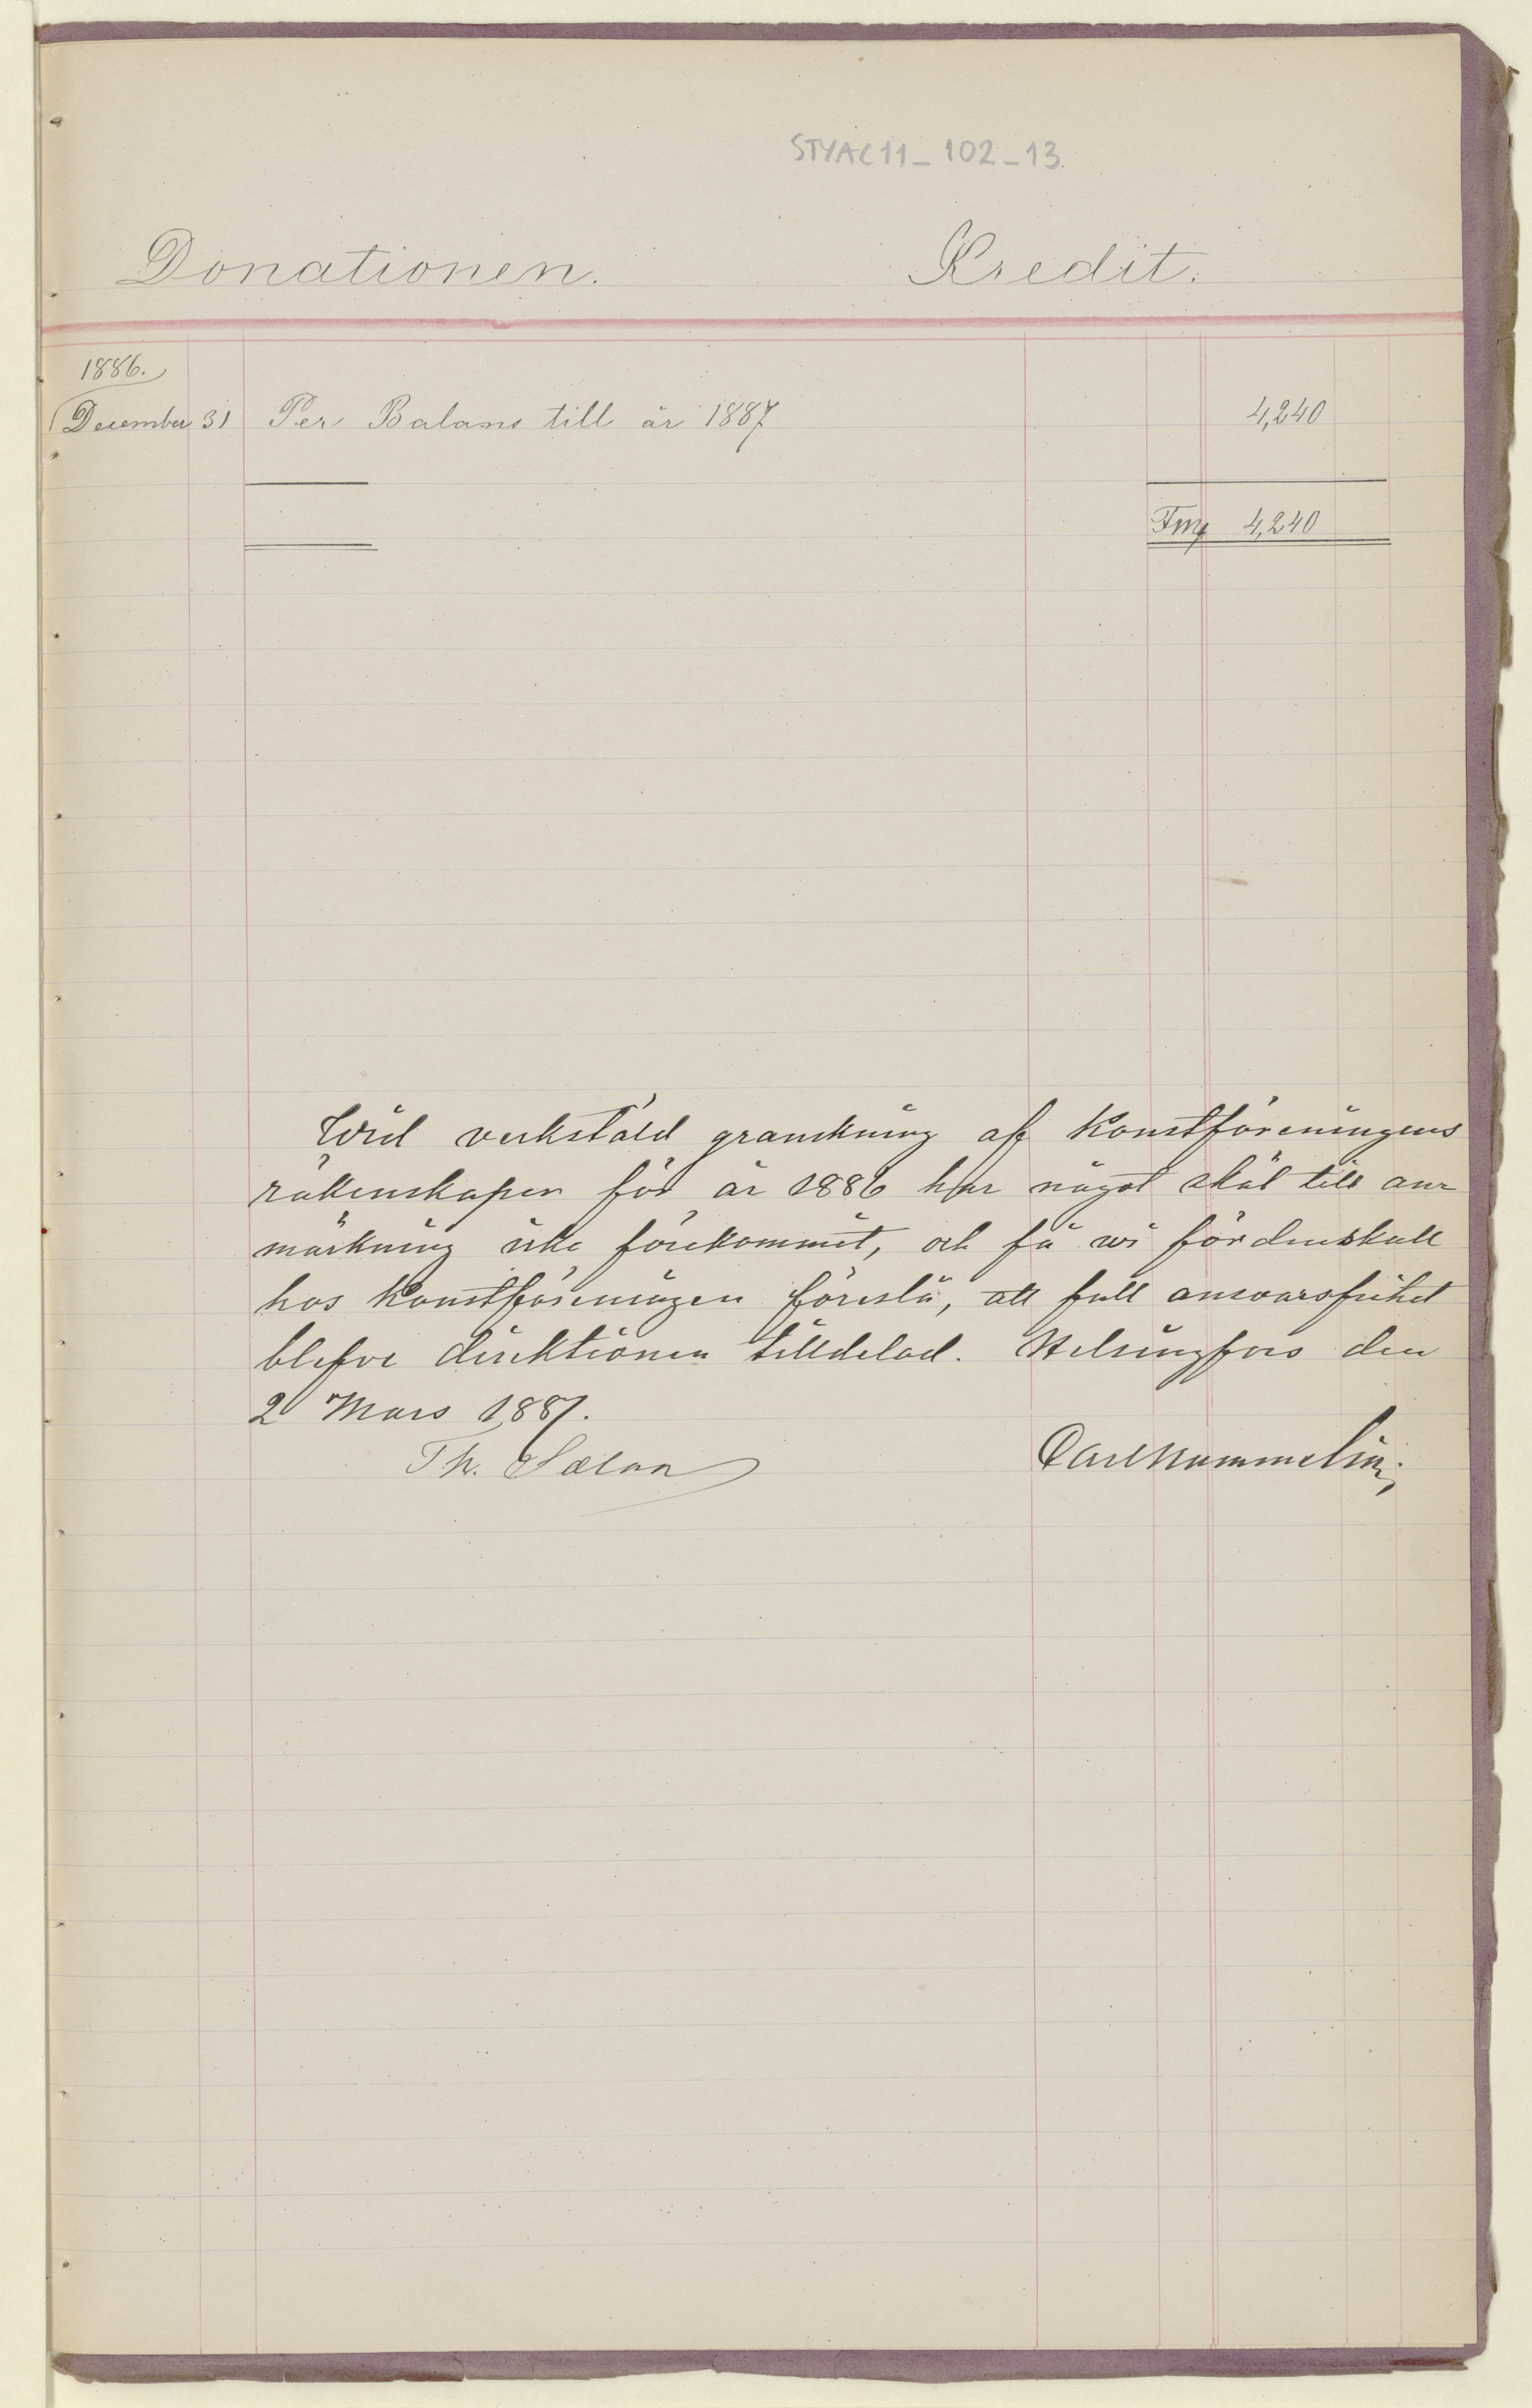 STYAC11_102_13.
Donationen. Kredit.
1886.
December 31 Per Balans till år 1887 4,240
Fmk 4,240
Wid verkstäld granskning af Konstföreningens
räkenskaper för år 1886 har något skäl till an-
märkning icke förekommit, och få wi fördenskull
hos Konstföreningen föreslå, att full answarsfrihet
blefve direktionen tilldelad. Helsingfors den
2 Mars 1887.
Th. Sælan Carl Hummelin